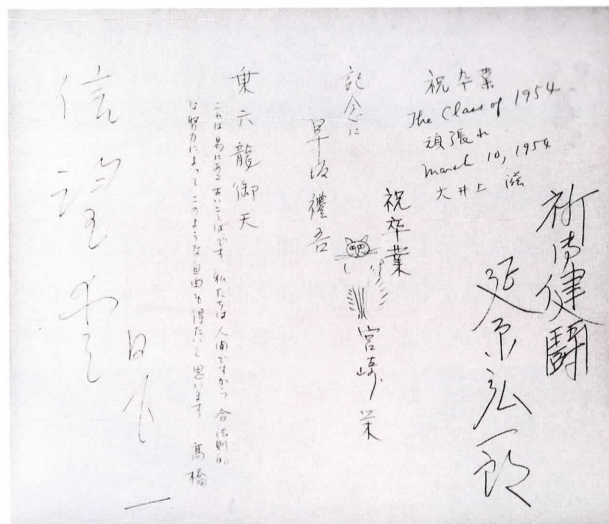 祈御健闘
延原弘一郎
祝卒業
The Class of 1954
頑張れ
March 10, 1954
大井上 滋
祝卒業
宮崎 栄
記念に
早坂禮吾
乗六龍御天
これは易にある古いことばです 私たちは人間ですから 合法則的
な努力によって このような自由を得たいと思います 高橋
信望愛